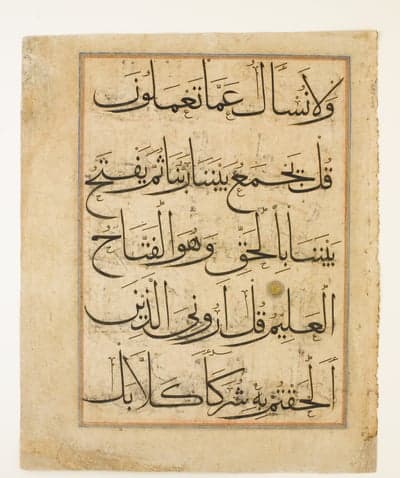 وَلَا نُسْأَلُ عَمَّا تَعْمَلُونَ
قُلْ يَجْمَعُ بَيْنَنَا رَبُّنَا ثُمَّ يَفْتَحُ
بَيْنَنَا بِالْحَقِّ وَهُوَ الْفَتَّاحُ
الْعَلِيمُ قُلْ أَرُونِيَ الَّذِينَ
أَلْحَقْتُمْ بِهِ شُرَكَاءَ كَلَّا بَلْ